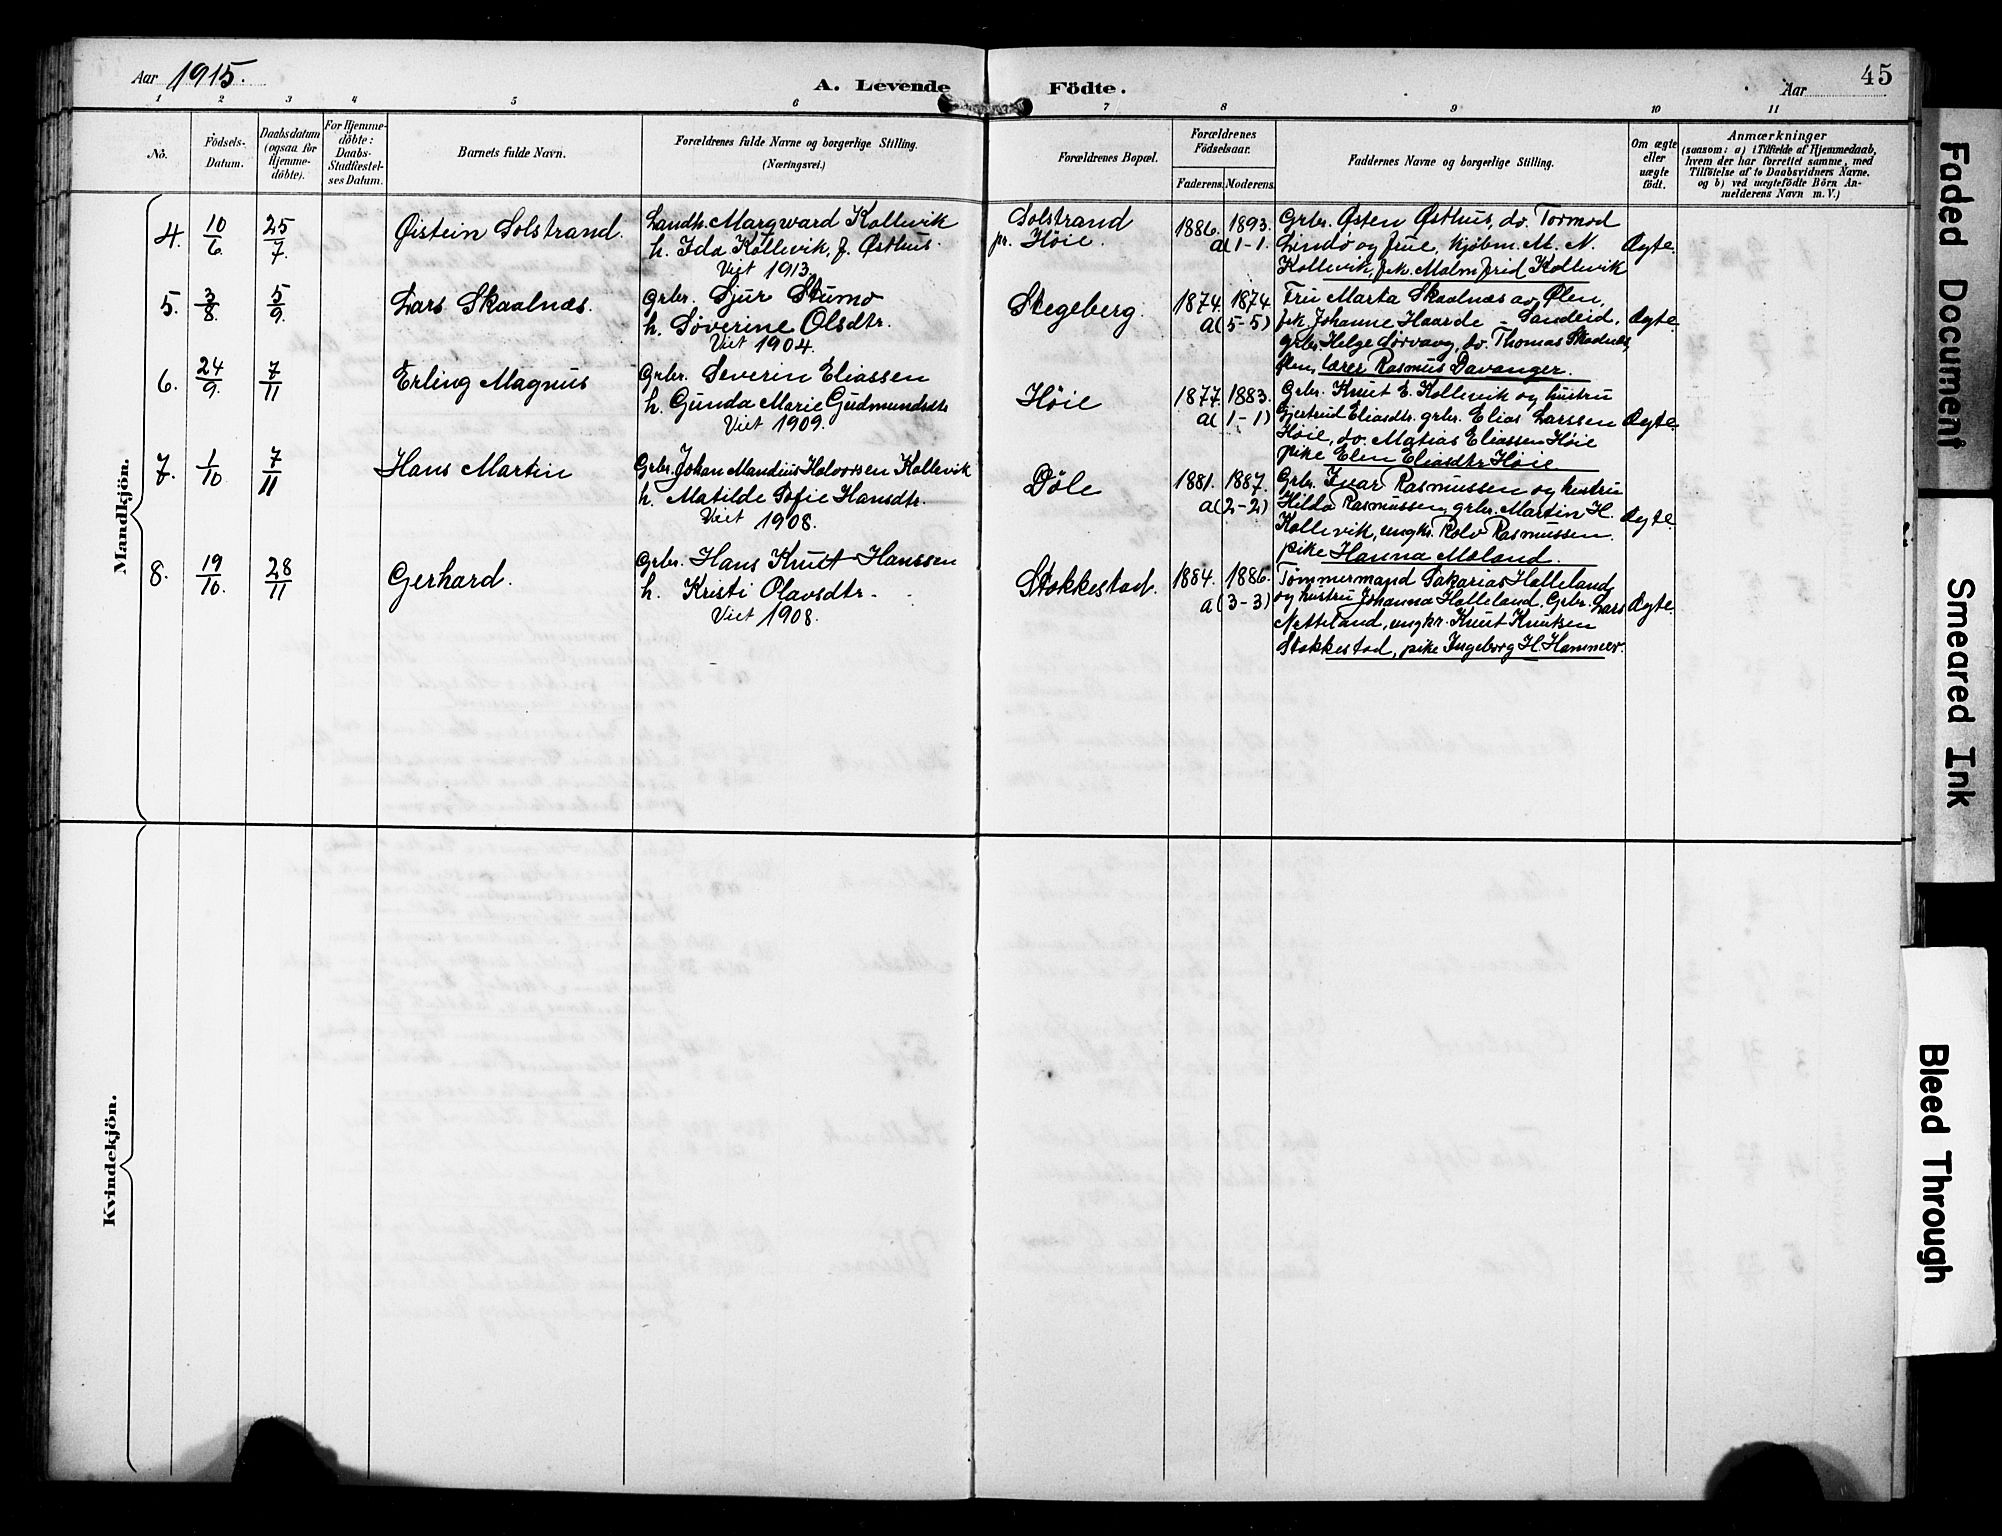 Aar 1915.
A. Levende Födte.
Aar
45
1 2 3 4 5 6 7 8 9 10 11
No.
Födsels-
Datum.
Daabsdatum
(ogsaa for
Hjemme-
döbte).
For Hjemme-
döbte:
Daabs-
Stadfæstel-
ses Datum.
Barnets fulde Navn.
Forældrenes fulde Navne og borgerlige Stilling.
(Næringsvei.)
Forældrenes Bopæl.
Forældrenes
Födselsaar.
Faderens. Moderens.
Faddernes Navne og borgerlige Stilling.
Om ægte
eller
uægte
födt.
Anmærkninger
(saasom: a) i Tilfælde af Hjemmedaab,
hvem der har forrettet samme, med
Tilföielse af to Daabsvidners Navne.
og b) ved uægtefödte Börn An-
melderens Navn m. V.)
Mandkjön.
4. 10/6. 25/7. Øistein Solstrand.
Landh. Margward Kollevik
h. Ida Kollevik, f. Østhus.
Viet 1913.
Solstrand
pr. Høie.
1886. 1893.
a(1-1.
Grbr. Østen Østhus, do. Tormod
Lindø og frue, kjøbm. M. N.
Kollevik, frk. Malmfrid Kollevik
Ægte.
5. 3/8. 5/9. Lars Skaalnæs.
Grbr. Sjur Stumo
h. Søverine Olsdtr.
Viet 1904.
Stegeberg.
1874. 1874
a(5-5)
Fru Marta Skaalnæs av Ølen,
frk. Johanne Haarde - Sandeid.
grbr. Helge Sørvaag, do. Thomas Skadnes,
Ølen, lærer Rasmus Davanger.
Ægte
6. 24/9. 7/11 Erling Magnus
Grbr. Severin Eliassen
h. Gunda Marie Gudmundsdtr
Viet 1909.
Høie
1877. 1883.
a(1-1)
Grbr. Knut E. Kollevik og hustru
Gjertrud Eliasdtr. grbr. Elias Larssen
Høie, do. Matias Eliassen Høie
pike Elen Eliasdtr Høie
Ægte.
7. 1/10 7/11 Hans Martin
Grbr. Johan Mandius Halvorsen Kollevik
h. Matilde Sofie Hansdtr.
Viet 1908.
Døle
1881. 1887.
a(2-2)
Grbr. Ivar Rasmussen og hustru
Hilda Rasmussen, grbr. Martin H.
Kollevik, ungkr. Rolv Rasmussen.
pike Hanna Mæland.
Ægte.
8. 19/10. 28/11 Gerhard.
Grbr. Hans Knut Hanssen
h. Kristi Olavsdtr.
Viet 1908.
Stokkestad.
1884. 1886.
a(3-3)
Tømmermand Sakarias Halleland
og hustru Johanna Halleland. Grbr. Lars
Netteland, ungkr. Knut Knutsen
Stokkestad, pike Ingeborg H. Hammer.
Ægte.
Kvindekjön.
Faded Document
Smeared Ink
Bleed Through